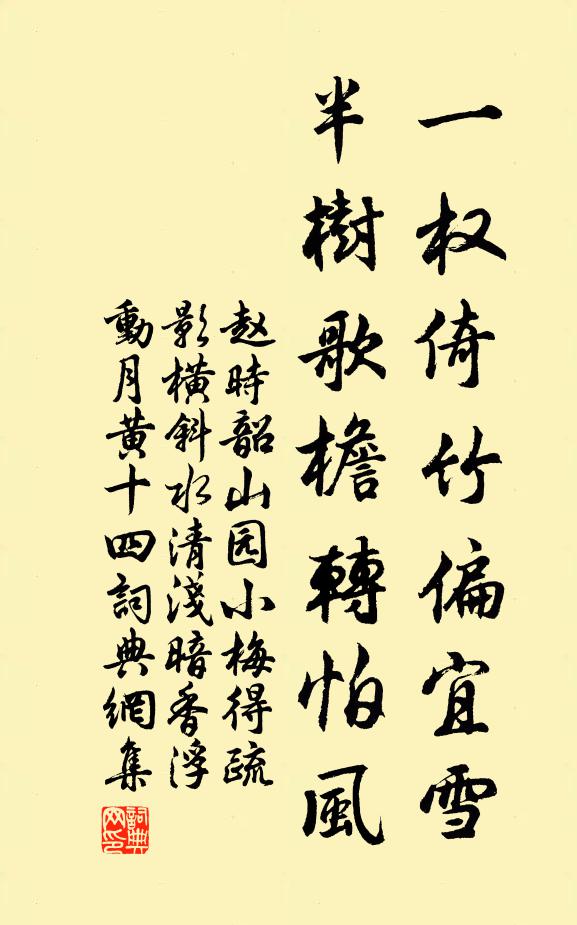 一杈倚竹偏宜雪
半樹歌檐轉怕風
赵時韶山园小梅得疏
影横斜水清淺暗香浮
動月黄十四詞典網集
詞典
网印